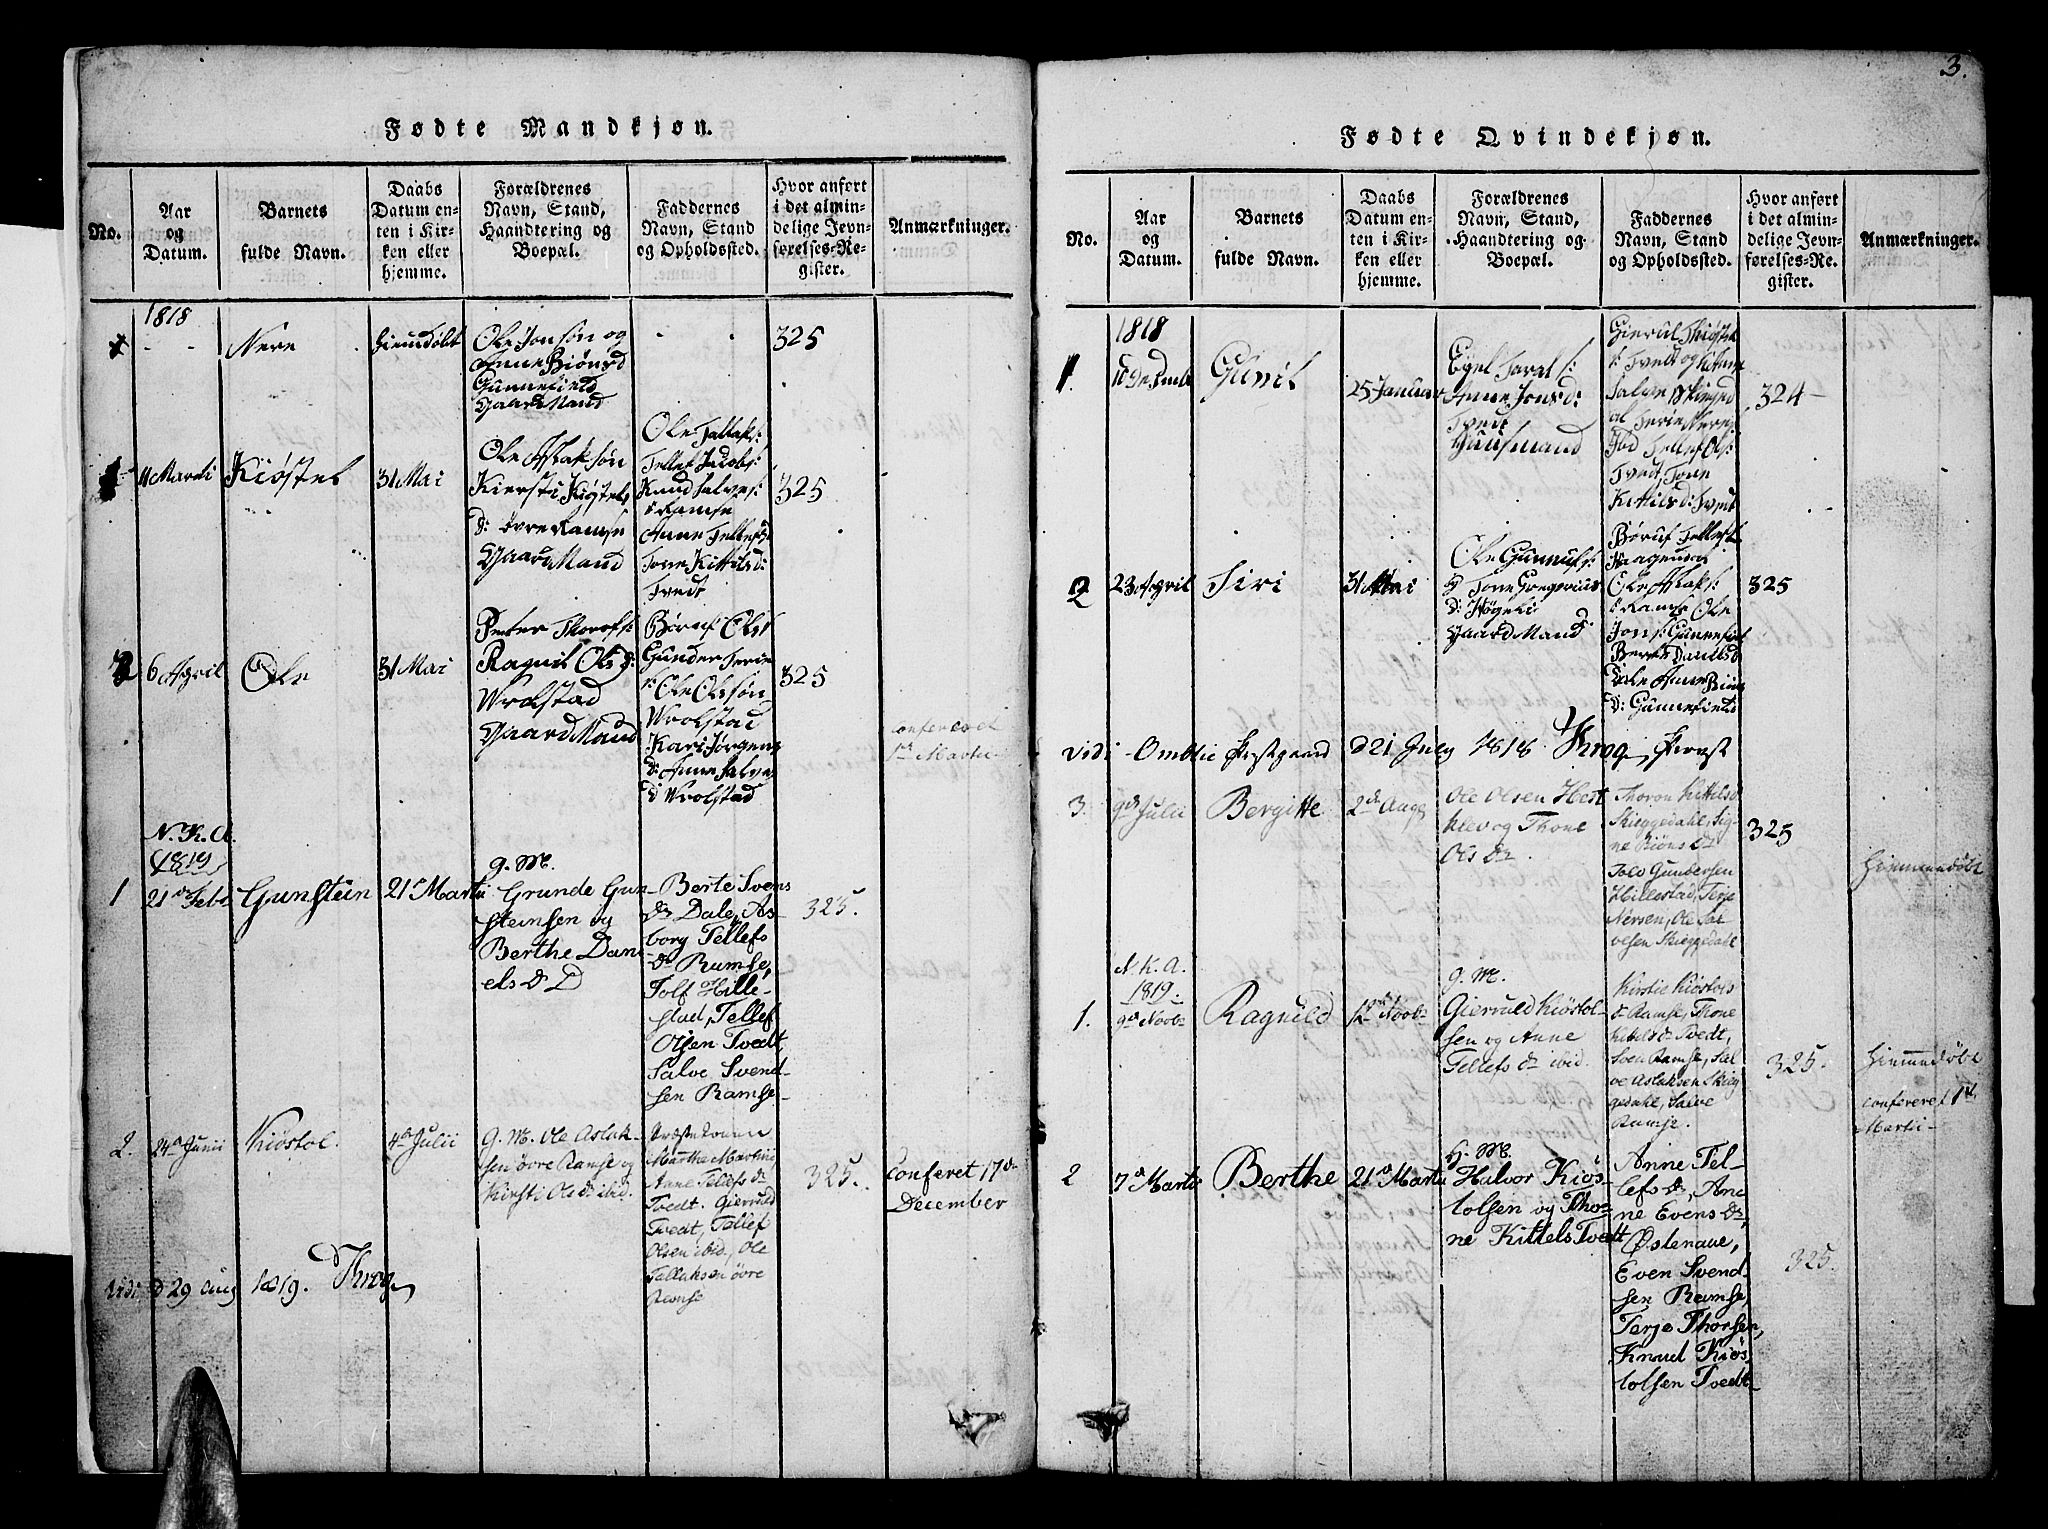 Fødte Mandkjøn.
No.
Aar
og
Datum.
Barnets
fulde Navn.
Daabs
Datum en-
ten i Kir-
ken eller
hjemme.
Forældrenes
Navn, Stand,
Haandtering og
Boepæl.
Faddernes
Navn, Stand
og Opholdssted.
Hvor anført
i det almin-
delige Jevn-
førelses-Re-
gister.
Anmærkninger.
1818
Nere
hiemdøbt
Ole Jonsøn og
Anne Biønsd
Gunnefield
Gaard Mand
325
1
11 Martsi
Kiøstel
31 Mai
Ole Aslaksøn
Kiersti Kiøstels
d: øvre Ramse
Gaard Mand
Ole Tallaks:
Tellef Jacobs:
Knud Salves:
Ramse
Anne Tellefsd
Tone Kittilsd:
Tvedt
325
2
6 April
Ole
31 Mai
Peter Thorofs:
Ragnil Olsd:
Wrolstad
Gaard Mand
Børuf Ols:
Gunder Terie
s: Ole Olssøn
Wrolstad
Kari Jørgens
d: Anne Salves
d Wrolstad
325
confereret
1st Martii
N. K. A.
1819
1
21de Febr
Gunstein
21 Martii
g. M.
Grunde Gun-
steinsen og
Berthe Dani-
els dr D
Berte Svens
dr Dale, As-
borg Tellefs
dr Ramse,
Tolf Hille-
stad, Tellef
Olsen Tvedt,
Salve Svend-
sen Ramse
325.
2.
24de Junii
Kiøstol.
4de Julii
g. M. Ole Aslak-
sen øvre Ramse og
Kirsti Ols dr ibid.
Martha Martins
Anne Tellefs dr
Tvedt. Gierruld
Tvedt, Tellef
Olsen ibid, Ole
Tallaksen øvre
Ramse
325.
Conferet 17de
December
vidi d 29 Aug 1819. Krog
3.
Fødte Qvindekjøn.
No.
Aar
og
Datum.
Barnets
fulde Navn.
Daabs
Datum en-
ten i Kir-
ken eller
hjemme.
Forældrenes
Navn, Stand,
Haandtering og
Boepæl.
Faddernes
Navn, Stand
og Opholdssted.
Hvor anført
i det almin-
delige Jevn-
førelses-Re-
gister.
Anmærkninger.
1818
1.
Gunil
25 Januar
Eyel Taral s:
Anne Jonsd:
Tvedt
Huusmand
Tvedt og
Tellef Ols:
Tvedt, Tone
Kittilsd: Tvedt
324
2
23 April
Siri
31 Mai
Ole Gunnufs:
Tone Gregorius
d: Høgeli
Gaard Mand
Børuf Tellefs:
Haugene
Ole Aslaks:
Ramse Ole
Jons: Gunnefield
Berte Danilsd
Dale Anne Biøns
d: Gunnefield
325
vidi - Omblie Præstgaard d 21 July 1818 Krog, Præst
3.
9de Julii
Bergitte
2de Aug
Ole Olsen Hest
klev og Thone
Ols dr
Thoron Kittilsd
Skieggedahl, Sig-
ne Biøns dr
Tolv Gundersen
Hillestad, Terje
Nersen, Ole Sal-
vesen Skieggedahl
325
Hiemmedøbt
N. K. A.
1819.
1.
9de Novbr
Ragnild
12te Novbr
g. M.
Gierruld Kiöstol-
sen og Anne
Tellefs dr ibid.
Kirstie Kiøstols
dr Ramse, Thone
Kittels dr Tvedt,
Sven Ramse, Sal-
ve Aslaksen Skieg-
gedahl, Salve
Ramse.
325.
Hiemmedøbt
confereret 1st
Martii-
2
7de Martii
Berthe
21de Martii
H. M.
Halvor Kiös-
tolsen og Tho-
ne Kittels Tvedt
Anne Tel-
lefs dr, An-
ne Evens dr,
Østenaue,
Even Svend-
sen Ramse,
Terje Thorsen,
Knud Kiøs-
tolsen Tvedt
325.